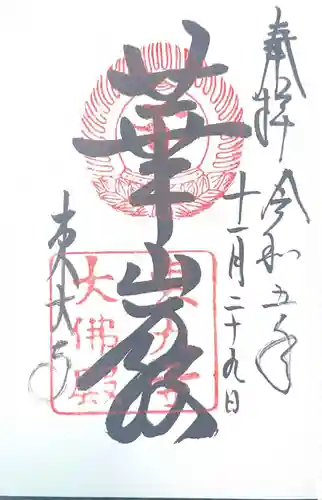 奉拝
令和五年
十一月二十九日
華嚴
大佛殿
東大寺